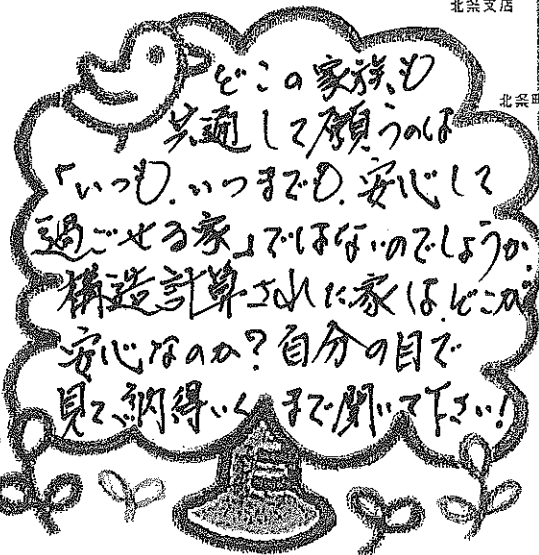 北条支店
北条町
どこの家族も
共通して願うのは
「いつも、いつまでも、安心して
過ごせる家」ではないのでしょうか。
構造計算された家は、どこが
安心なのか?自分の目で
見て、納得いくまで聞いて下さい!